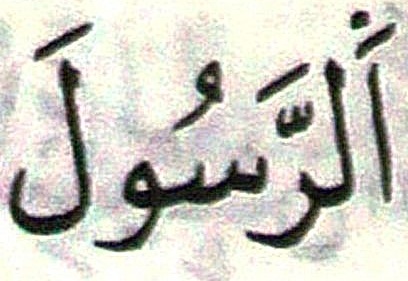 اَلرَّسُولَ